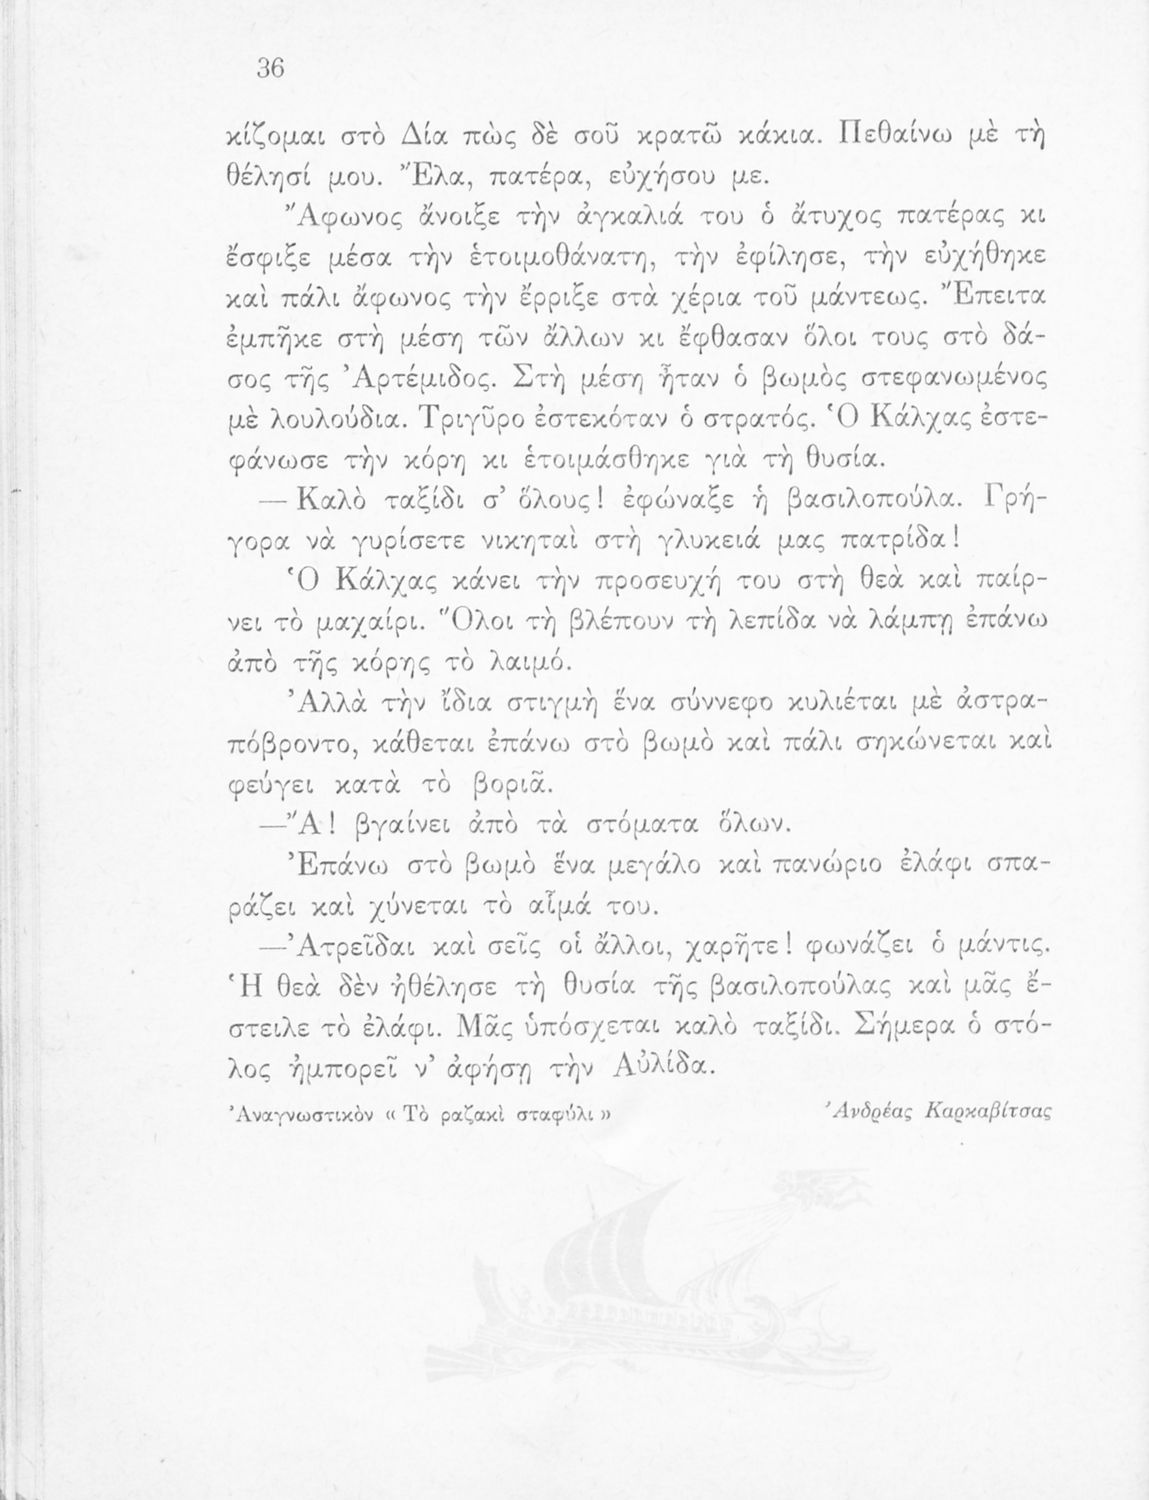 36
κίζομαι στὸ Δία πὼς δὲ σοῦ κρατῶ κάκια. Πεθαίνω μὲ τὴ
θέλησί μου. Ἔλα, πατέρα, εὐχήσου με.
Ἄφωνος ἄνοιξε τὴν ἀγκαλιά του ὁ ἄτυχος πατέρας κι
ἔσφιξε μέσα τὴν ἑτοιμοθάνατη, τὴν ἐφίλησε, τὴν εὐχήθηκε
καὶ πάλι ἄφωνος τὴν ἔρριξε στὰ χέρια τοῦ μάντεως. Ἔπειτα
ἐμπῆκε στὴ μέση τῶν ἄλλων κι ἔφθασαν ὅλοι τους στὸ δά-
σος τῆς Ἀρτέμιδος. Στὴ μέση ἦταν ὁ βωμὸς στεφανωμένος
μὲ λουλούδια. Τριγῦρο ἐστεκόταν ὁ στρατός. Ὁ Κάλχας ἐστε-
φάνωσε τὴν κόρη κι ἑτοιμάσθηκε γιὰ τὴ θυσία.
— Καλὸ ταξίδι σ' ὅλους! ἐφώναξε ἡ βασιλοπούλα. Γρή-
γορα νὰ γυρίσετε νικηταὶ στὴ γλυκειά μας πατρίδα!
Ὁ Κάλχας κάνει τὴν προσευχή του στὴ θεὰ καὶ παίρ-
νει τὸ μαχαίρι. Ὅλοι τὴ βλέπουν τὴ λεπίδα νὰ λάμπῃ ἐπάνω
ἀπὸ τῆς κόρης τὸ λαιμό.
Ἀλλὰ τὴν ἴδια στιγμὴ ἕνα σύννεφο κυλιέται μὲ ἀστρα-
πόβροντο, κάθεται ἐπάνω στὸ βωμὸ καὶ πάλι σηκώνεται καὶ
φεύγει κατὰ τὸ βοριᾶ.
—Ἄ! βγαίνει ἀπὸ τὰ στόματα ὅλων.
Ἐπάνω στὸ βωμὸ ἕνα μεγάλο καὶ πανώριο ἐλάφι σπα-
ράζει καὶ χύνεται τὸ αἷμά του.
—Ἀτρεῖδαι καὶ σεῖς οἱ ἄλλοι, χαρῆτε! φωνάζει ὁ μάντις.
Ἡ θεὰ δὲν ἠθέλησε τὴ θυσία τῆς βασιλοπούλας καὶ μᾶς ἔ-
στειλε τὸ ἐλάφι. Μᾶς ὑπόσχεται καλὸ ταξίδι. Σήμερα ὁ στό-
λος ἠμπορεῖ ν' ἀφήσῃ τὴν Αὐλίδα.
Ἀναγνωστικὸν « Τὸ ραζακὶ σταφύλι » Ἀνδρέας Καρκαβίτσας